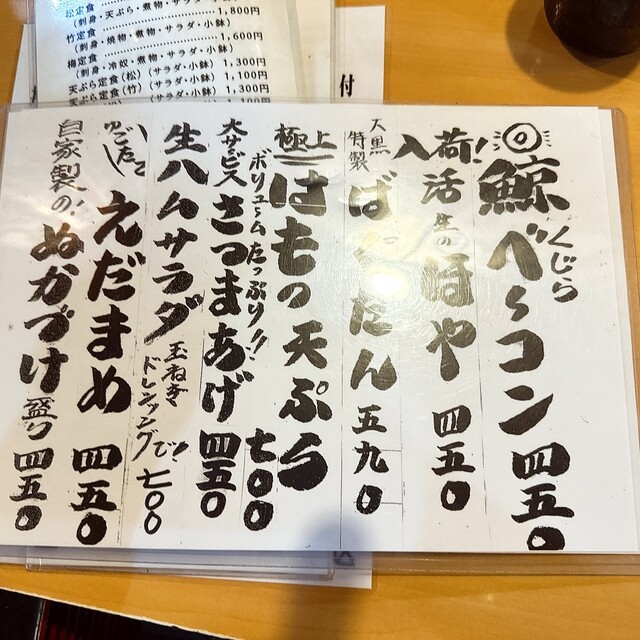 松定食
(刺身・天ぷら・煮物・サラダ・小鉢) 1,800円
竹定食
(刺身・焼物・煮物・サラダ・小鉢) 1,600円
梅定食
(刺身・冷奴・煮物・サラダ・小鉢) 1,300円
天ぷら定食(松)(サラダ・小鉢) 1,100円
天ぷら定食(竹)(サラダ・小鉢) 1,300円
付
◎鯨べーコン 四五〇
くじら
入荷! 活生のほや 四五〇
特製 ば たん 五九〇
極上 はもの天ぷら 七〇〇
ボリュームたっぷり!!
大サービス さつまあげ 四五〇
生ハムサラダ 玉ねぎドレッシングで! 七〇〇
えだまめ 四五〇
自家製の! ぬかづけ 盛り 四五〇